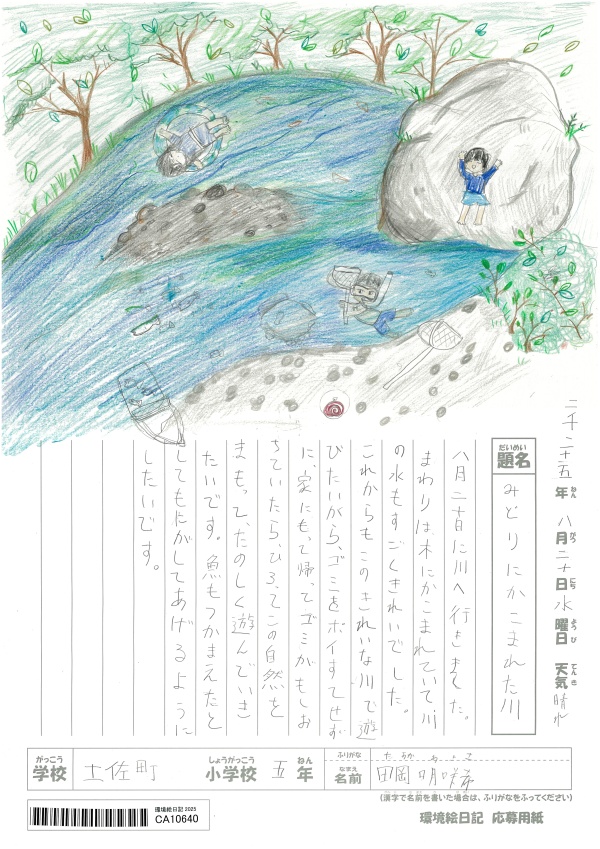 二千二十五年 八月二十日 水曜日 天気 晴れ
ねん がつ にち ようび てんき
題名 みどりにかこまれた川
だいめい
八月二十日に川へ行きました。
まわりは、木にかこまれていて、川
の水もすごくきれいでした。
これからもこのきれいな川で遊
びたいから、ゴミをポイすてせず
に、家にもって帰ってゴミがもしお
ちていたら、ひろってこの自然を
まもって、たのしく遊んでいき
たいです。魚もつかまえたと
してもにがしてあげるように
したいです。
がっこう しょうがっこう ねん
学校 土佐町 小学校 五年
ふりがな
なまえ
名前 田岡
(漢字で名前を書いた場合は、ふりがなをふってください)
環境絵日記 2025
CA10640
環境絵日記 応募用紙